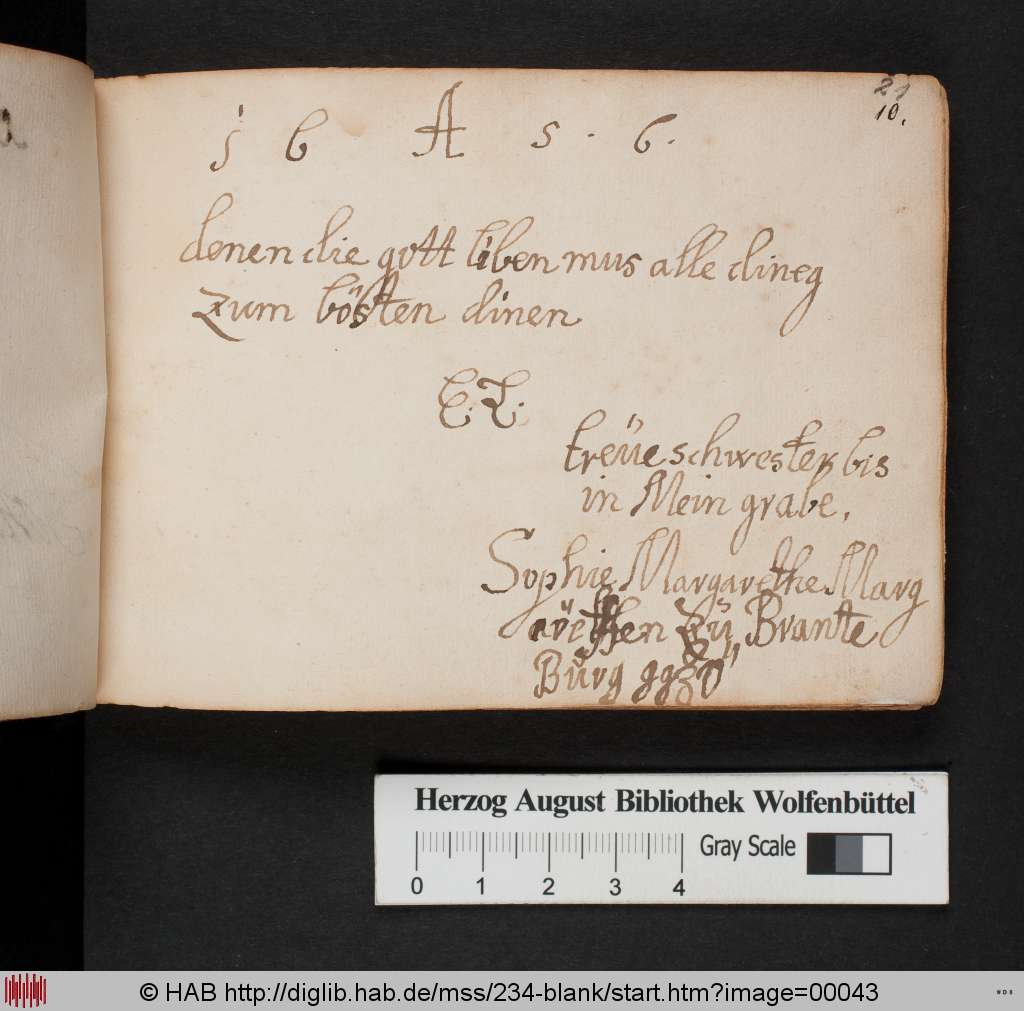 21
10.
1 6 A 5 . 6 .
denen die gott liben mus alle dineg
zum bösten dinen
E. L.
treüe schwester bis
in Mein grabe,
Sophie Margarethe Marg
zü Brante
Bürg ggzö
Herzog August Bibliothek Wolfenbüttel
Gray Scale
0 1 2 3 4
© HAB http://diglib.hab.de/mss/234-blank/start.htm?image=00043